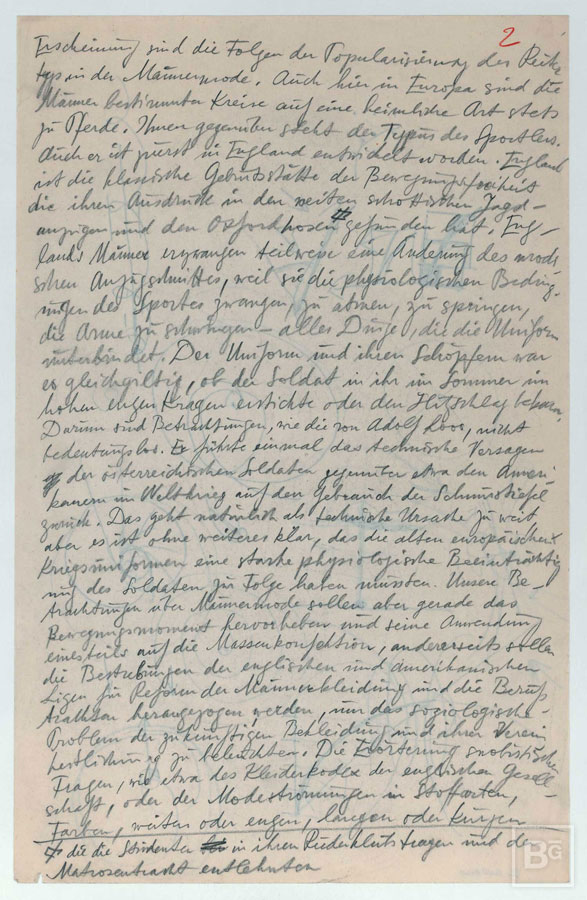 2
Erscheinung sind die Folgen der Popularisierung des Reit-
typs in der Männermode. Auch hier in Europa sind die
Männer bestimmter Kreise auf eine heimliche Art stets
zu Pferde. Ihnen gegenüber steht der Typus des Sportlers.
Auch er ist zuerst in England entwickelt worden. England
ist die klassische Geburtsstätte der Bewegungsfreiheit
die ihren Ausdruck in den weiten schottischen Jagd-
anzügen und den Oxfordhosen gefunden hat. Eng-
lands Männer erzwangen teilweise eine Änderung des modi-
schen Anzugschnittes, weil sie die physiologischen Beding-
ungen des Sportes zwangen, zu atmen, zu springen,
die Arme zu schwingen – alles Dinge, die die Uniform
unterbindet. Der Uniform und ihren Schöpfern war
es gleichgiltig, ob der Soldat in ihr im Sommer im
hohen engen Kragen erstickte oder den Hitzschlag bekam.
Darum sind Betrachtungen, wie die von Adolf Loos, nicht
bedeutungslos. Er führte einmal das technische Versagen
der österreichischen Soldaten gegenüber etwa den Ameri-
kanern im Weltkrieg auf den Gebrauch der Schnürstiefel
zurück. Das geht natürlich als technische Ursache zu weit
aber es ist ohne weiteres klar, das die alten europäischen
Kriegsuniformen eine starke physiologische Beeinträchtig
ung des Soldaten zu Folge haben mussten. Unsere Be-
trachtungen über Männermode sollen aber gerade das
Bewegungsmoment hervorheben und seine Anwendung
einesteils auf die Massenkonfektion, andererseits sollen
die Bestrebungen der englischen und amerikanischen
Ligen zur Reform der Männerkleidung und die Berufs
trachten herangezogen werden, um das soziologische
Problem der zukünftigen Bekleidung und ihrer Verein
heitlichung zu beleuchten. Die Erörterung snobistischer
Fragen, wie etwa des Kleiderkodex der englischen Gesell-
schaft, oder der Modeströmungen in Stoffarten,
Farben, weiten oder engen, langen oder kurzen
die die Studenter in ihren Ruderklubs tragen und der
Matrosentracht entlehnten
BG